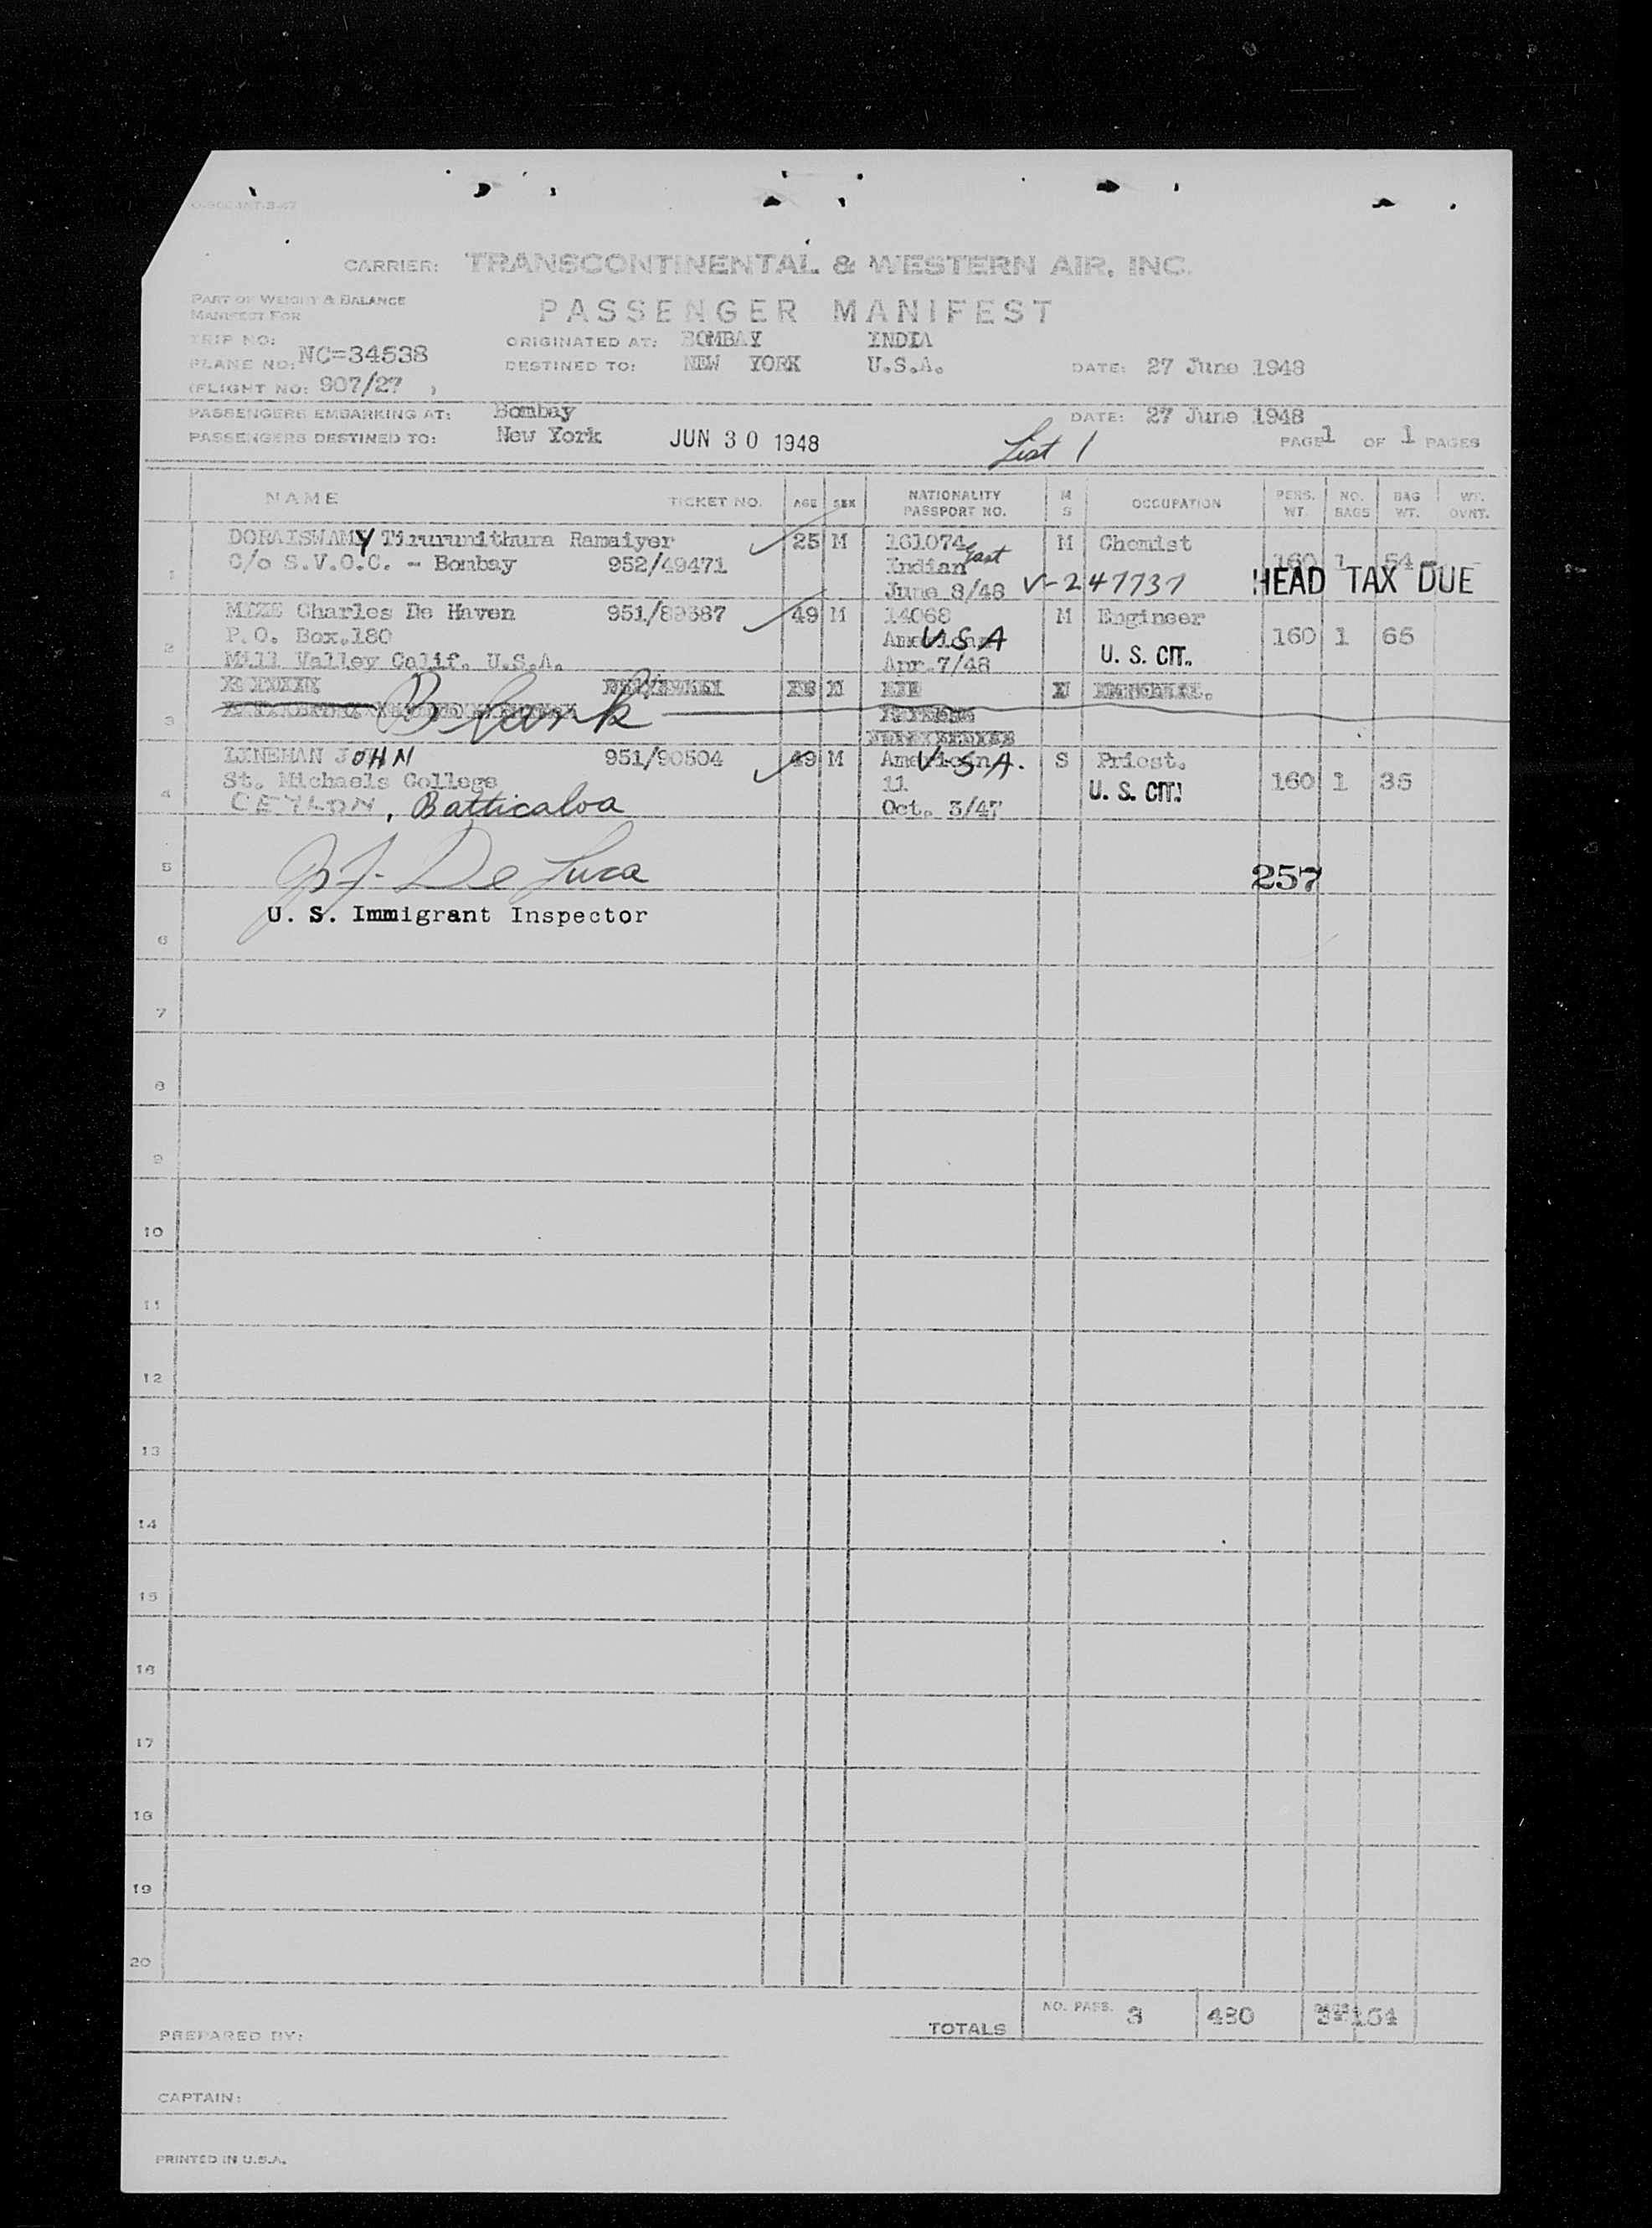 CARRIER: TRANSCONTINENTAL & WESTERN AIR, INC.
PART OF WEIGHT & BALANCE
MANIFEST FOR
PASSENGER MANIFEST
TRIP NO:
PLANE NO: NC=34538
(FLIGHT NO: 907/27 )
ORIGINATED AT: BOMBAY INDIA
DESTINED TO: NEW YORK U.S.A. DATE: 27 June 1948
PASSENGERS EMBARKING AT: Bombay DATE: 27 June 1948
PASSENGERS DESTINED TO: New York JUN 30 1948 List 1 PAGE 1 OF 1 PAGES
NAME TICKET NO. AGE SEX NATIONALITY PASSPORT NO. M S OCCUPATION PERS. WT. NO. BAGS BAG WT. WT. OVRT.
1 DORAISWAMY Tirurunithura Ramaiyer 25 M 161074 M Chemist
C/o S.V.O.C. - Bombay 952/49471 East Indian 160 1 54
June 8/48 V-247737 HEAD TAX DUE
2 MIZE Charles De Haven 951/89387 49 M 14068 M Engineer
P.O. Box.180 American USA 160 1 65
Mill Valley Calif. U.S.A. Apr.7/48 U. S. CIT.
3 Blank
4 LINEHAN JOHN 951/90504 49 M American U.S.A. S Priest.
St. Michaels College 11 U. S. CIT. 160 1 35
CEYLON, Batticaloa Oct. 3/47
5 De Luca 257
U. S. Immigrant Inspector
6
7
8
9
10
11
12
13
14
15
16
17
18
19
20
TOTALS NO. PASS. 3 480 3 154
PREPARED BY:
CAPTAIN:
PRINTED IN U.S.A.